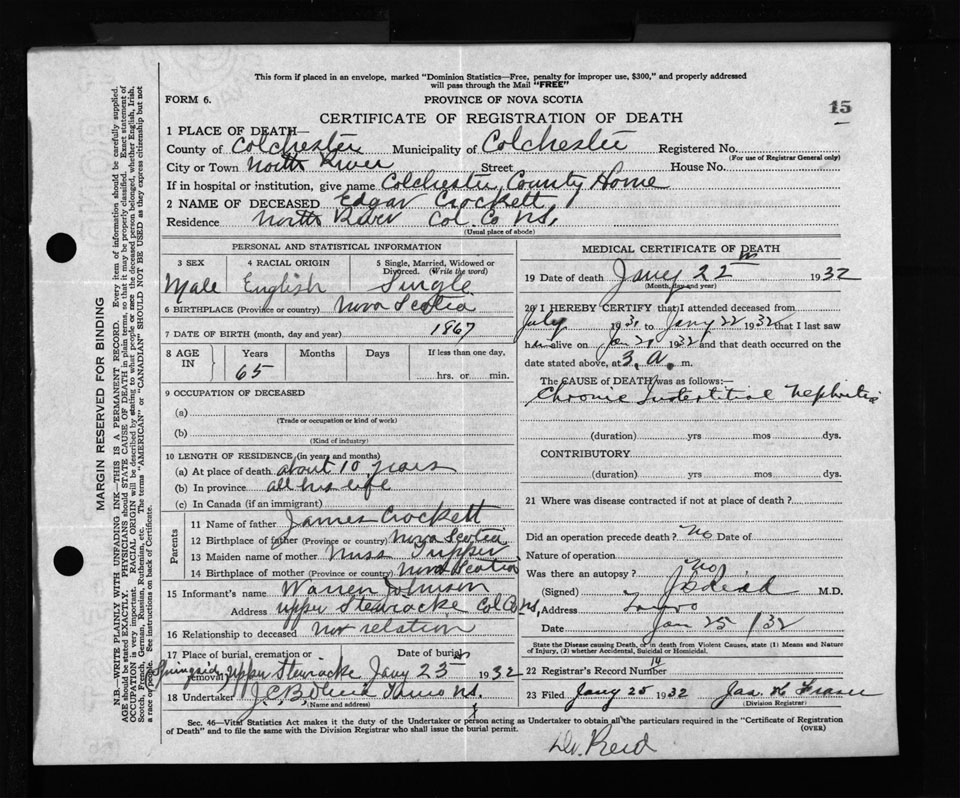 This form if placed in an envelope, marked "Dominion Statistics—Free, penalty for improper use, $300," and properly addressed
will pass through the Mail "FREE"
FORM 6.
PROVINCE OF NOVA SCOTIA
15
CERTIFICATE OF REGISTRATION OF DEATH
1 PLACE OF DEATH—
County of Colchester Municipality of Colchester Registered No.
(For use of Registrar General only)
City or Town North River Street House No.
If in hospital or institution, give name Colchester County Home
2 NAME OF DECEASED Edgar Crockett
Residence North River Col. Co NS,
(Usual place of abode)
PERSONAL AND STATISTICAL INFORMATION
3 SEX 4 RACIAL ORIGIN 5 Single, Married, Widowed or
Divorced. (Write the word)
Male English Single
6 BIRTHPLACE (Province or country) Nova Scotia
7 DATE OF BIRTH (month, day and year) 1867
8 AGE IN Years Months Days If less than one day,
65 hrs. or min.
9 OCCUPATION OF DECEASED
(a)
(Trade or occupation or kind of work)
(b)
(Kind of industry)
10 LENGTH OF RESIDENCE (in years and months)
(a) At place of death about 10 years
(b) In province all his life
(c) In Canada (if an immigrant)
Parents
11 Name of father James Crockett
12 Birthplace of father (Province or country) Nova Scotia
13 Maiden name of mother Miss Tupper
14 Birthplace of mother (Province or country) Nova Scotia
15 Informant's name Warren Johnson
Address Upper Stewiacke Col Co NS,
16 Relationship to deceased not relation
17 Place of burial, cremation or removal Date of burial
Upper Stewiacke Jany 23 1932
18 Undertaker J.C.B. Truro NS.
(Name and address)
MEDICAL CERTIFICATE OF DEATH
19 Date of death Jany 22th 1932
(Month, day and year)
20 I HEREBY CERTIFY that I attended deceased from
July 1931 to Jany 22 1932 that I last saw
him alive on Jan 20 1932 and that death occurred on the
date stated above, at 3. A. m.
The CAUSE OF DEATH was as follows:—
Chronic Interstitial Nephritis
(duration) yrs mos dys.
CONTRIBUTORY
(duration) yrs mos dys.
21 Where was disease contracted if not at place of death?
Did an operation precede death? No Date of
Nature of operation
Was there an autopsy? No
(Signed) Reid M.D.
Address Truro
Date Jan 25 /32
State the Disease causing Death, or in death from Violent Causes, state (1) Means and Nature
of Injury, (2) whether Accidental, Suicidal or Homicidal.
22 Registrar's Record Number 14
23 Filed Jany 25 1932 Jas. Fraser
(Division Registrar)
Sec. 46—Vital Statistics Act makes it the duty of the Undertaker or person acting as Undertaker to obtain all the particulars required in the "Certificate of Registration
of Death" and to file the same with the Division Registrar who shall issue the burial permit.
(OVER)
Dr. Reid
MARGIN RESERVED FOR BINDING
N.B.—WRITE PLAINLY WITH UNFADING INK—THIS IS A PERMANENT RECORD. Every item of information should be carefully supplied.
AGE should be stated EXACTLY. PHYSICIANS should STATE CAUSE OF DEATH in plain terms, so that it may be properly classified. Exact statement of
OCCUPATION is very important. RACIAL ORIGIN will be described by stating to what people or race the deceased person belonged, whether English, Irish,
Scotch, French, German, Russian, Ruthenian, etc. The terms "AMERICAN" or "CANADIAN" SHOULD NOT BE USED as they express citizenship but not
a race or people. See instructions on back of Certificate.